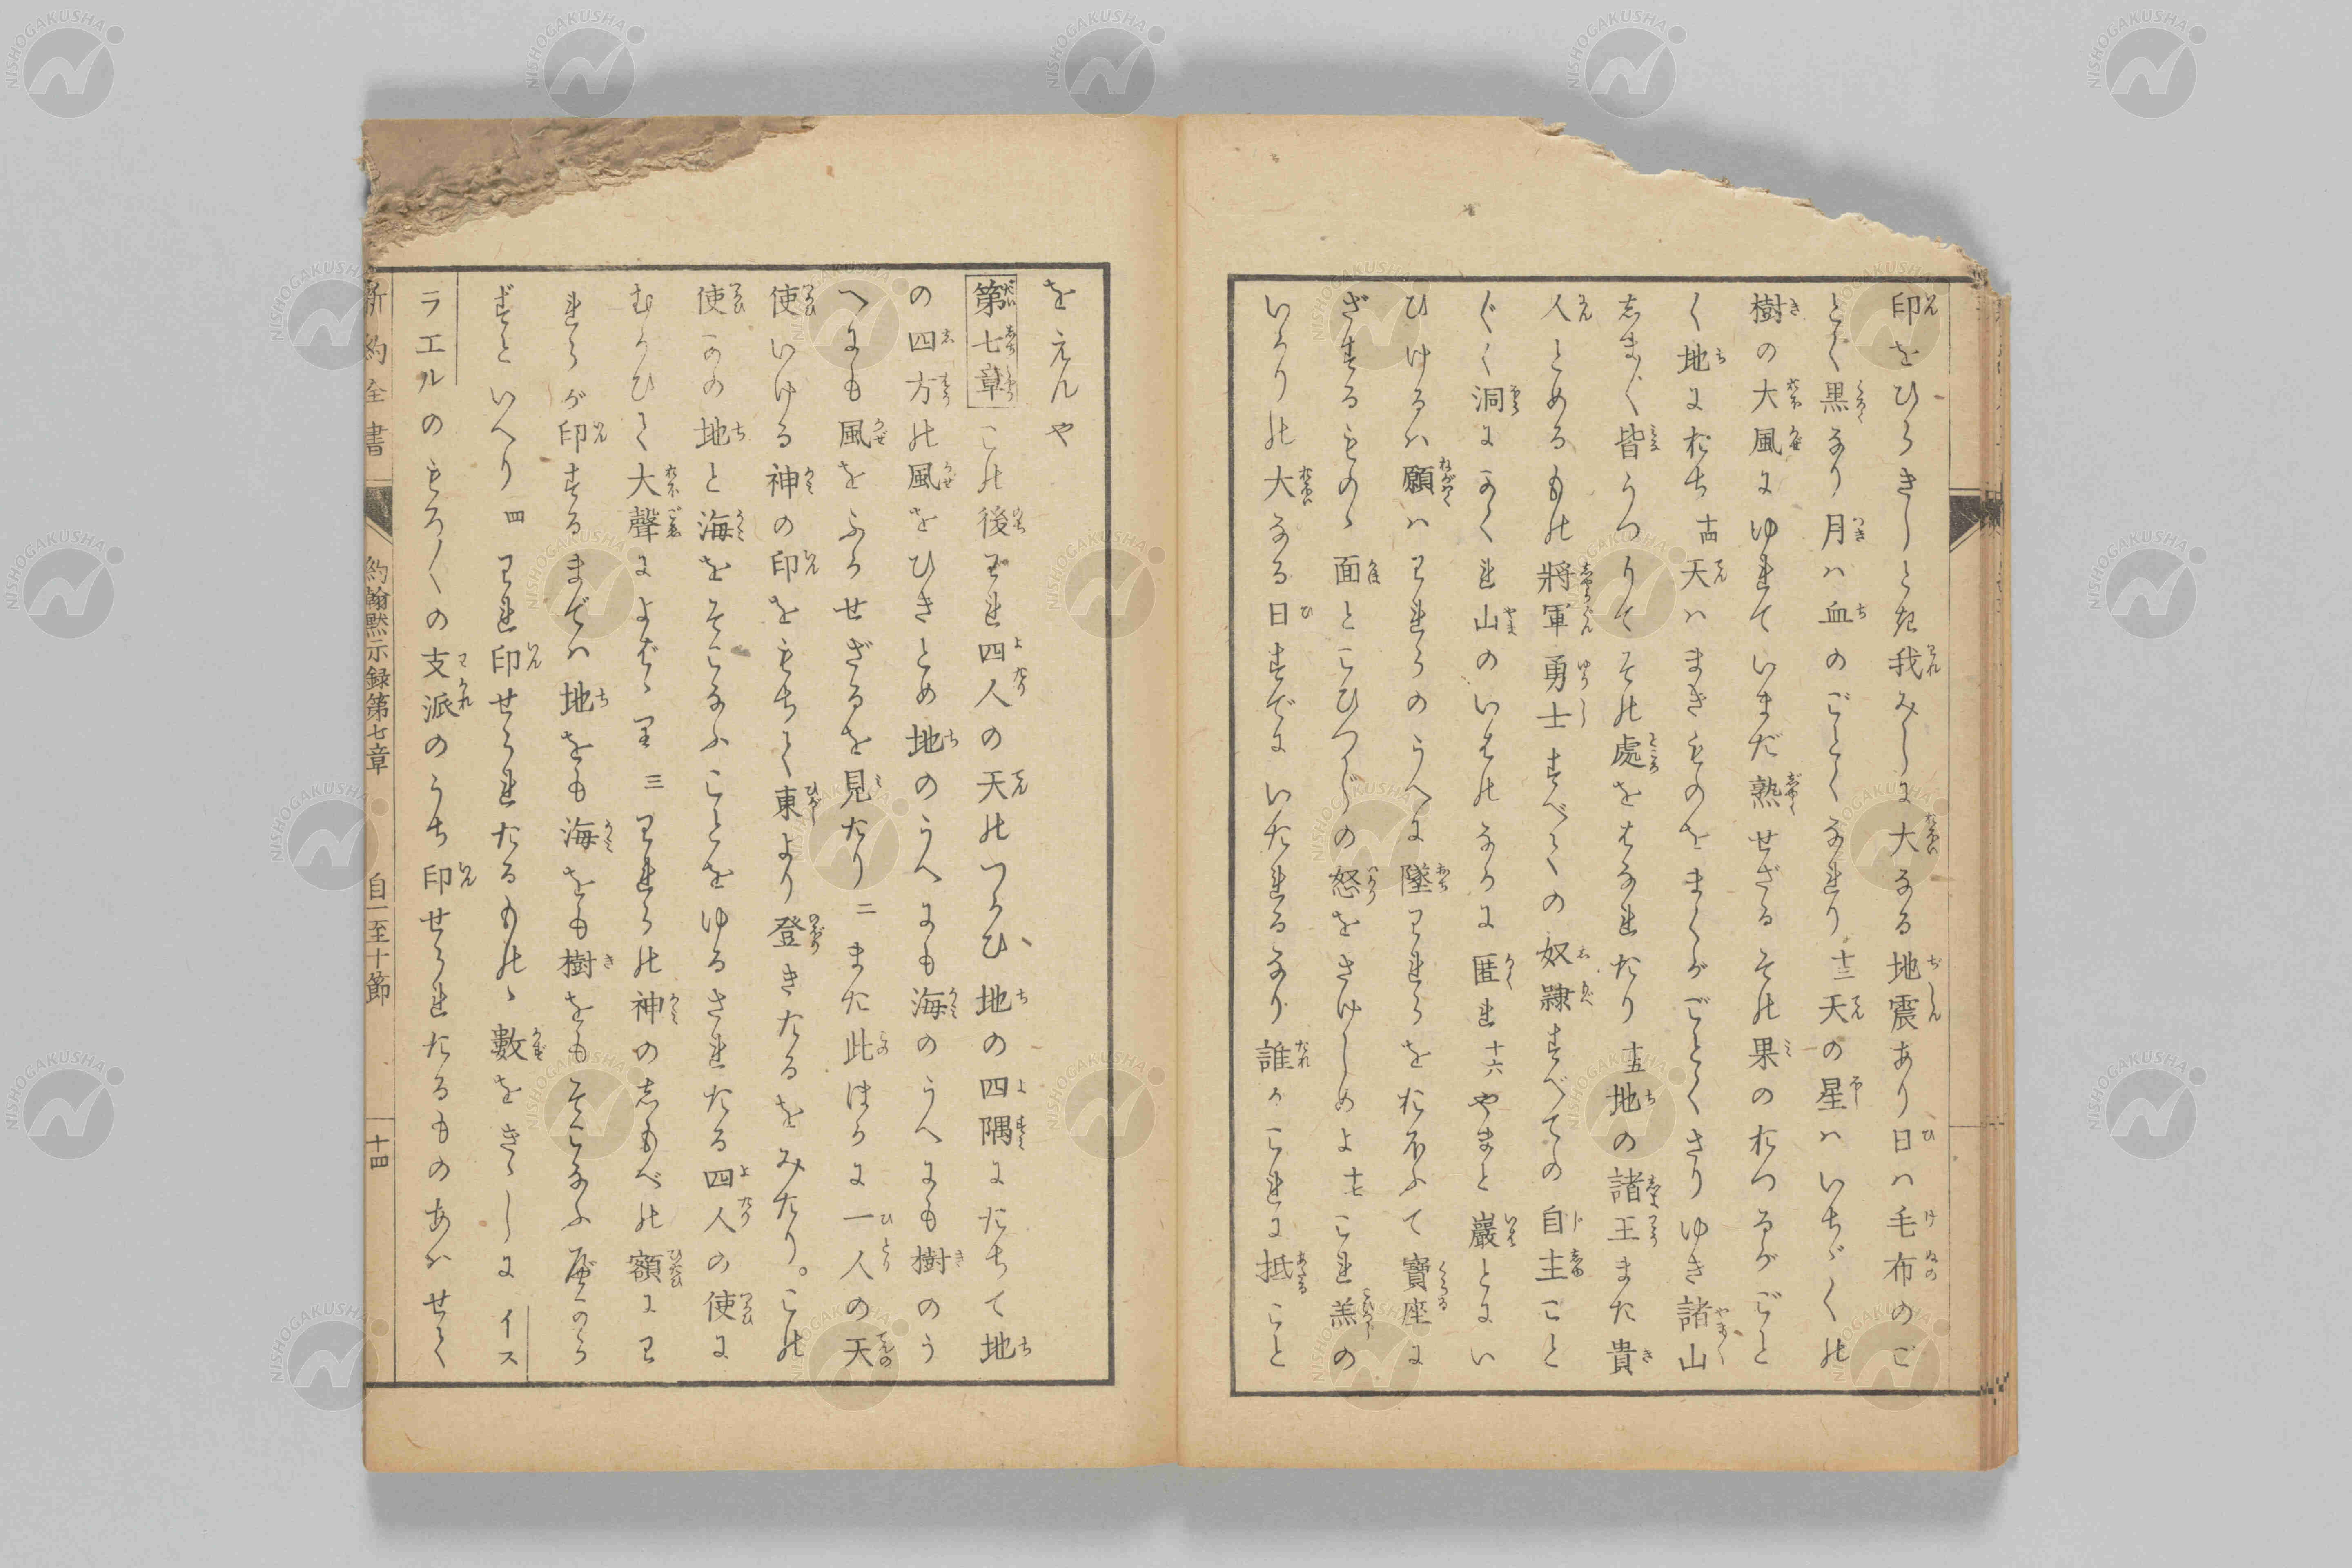 印をひらきしとき我みしに大なる地震あり日ハ毛布のご
とく黒なり月ハ血のごとくなれり十三天の星ハいちゞくの
樹の大風にゆれていまだ熟せざるその果のおつるがごと
く地におち十四天ハまきものをまくがごとくさりゆき諸山
しまじま皆うつりてその處をはなれたり十五地の諸王また貴
人とめるもの將軍勇士すべての奴隷すべての自主こと
ごとく洞にかくれ山のいはのなかに匿れ十六やまと巖とにい
ひけるハ願ハわれらのうへに墜われらをたおふて寶座に
ざするものゝ面とこひつじの怒をさけしめよ十七これ羔の
いかりの大なる日すでにいたれるなり誰かこれに抵こと
をえんや
第七章この後われ四人の天のつかひ地の四隅にたちて地
の四方の風をひきとめ地のうへにも海のうへにも樹のう
へにも風をふかせざるを見たり二また此ほかに一人の天
使いける神の印をもちて東より登きたるをみたり。この
使かの地と海をそこなふことをゆるされたる四人の使に
むかひて大聲によばゝり三われらの神のしもべの額にわ
れらが印するまでハ地をも海をも樹をもそこなふべから
ずといへり四われ印せられたるものゝ數をきゝしにイス
ラエルのもろ〱の支派のうち印せられたるものあハせて
新約全書
約翰黙示録第七章
自一至十節
十四
NISHOGAKUSHA